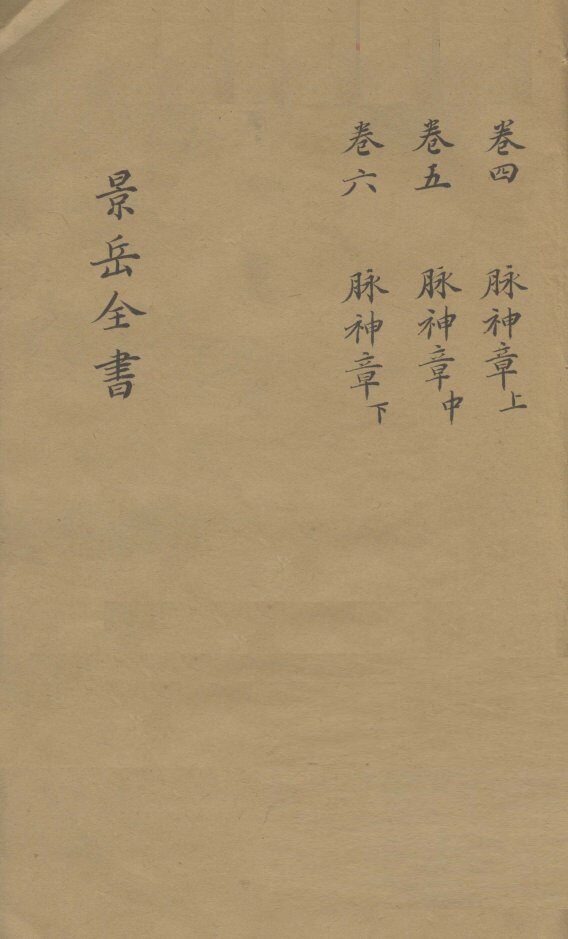 卷四　脉神章上
卷五　脉神章中
卷六　脉神章下
景岳全書